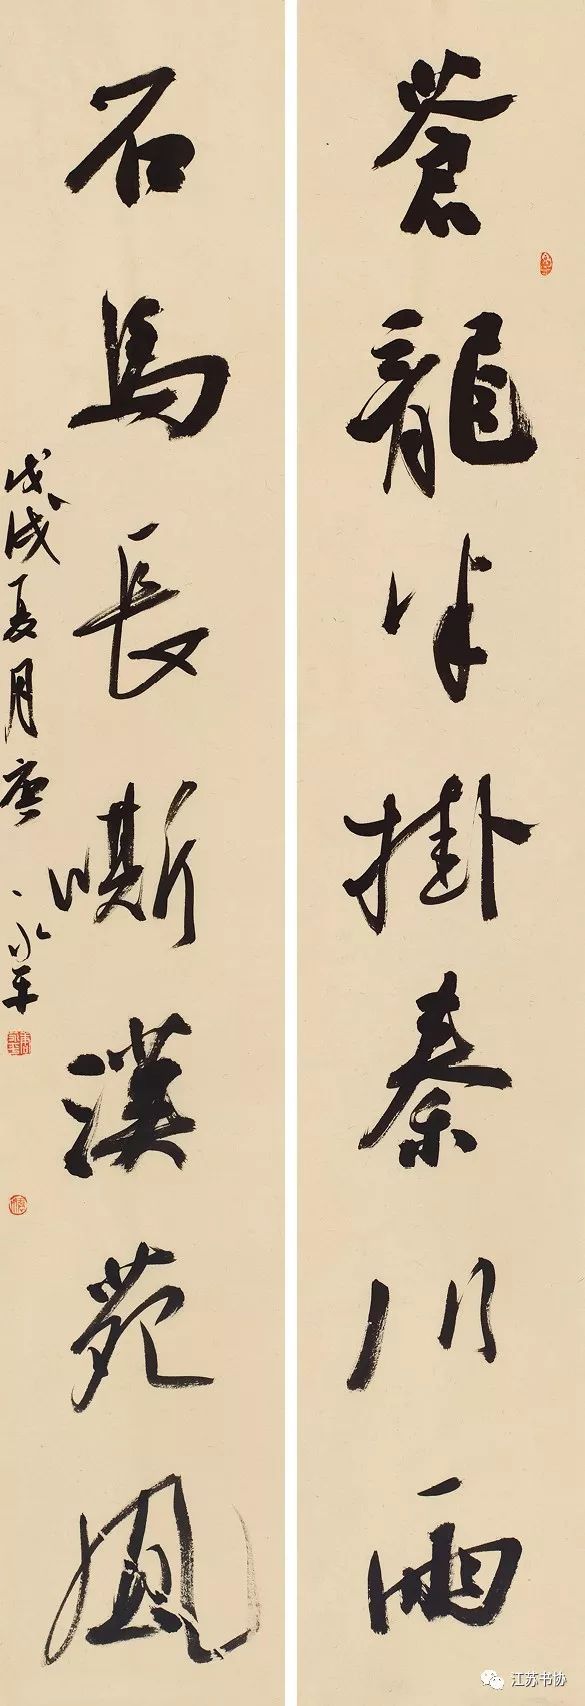 蒼龍半掛秦川雨
石馬長嘶漢苑風
戊戌夏月唐永平
江苏书协